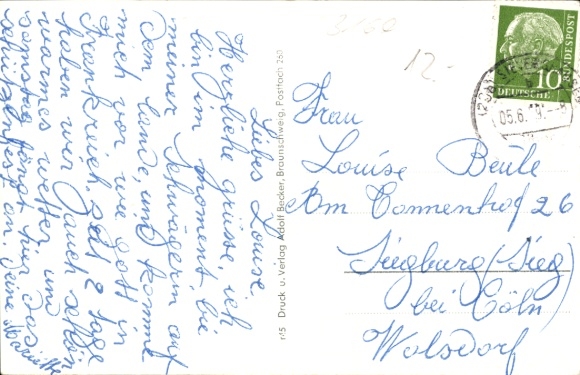 Liebes Louise.
Herzliche grüsse, ich
bin im moment bei
meiner Schwägerin auf
dem lande, und komme
mich vor wie Gott in
Frankreich. Seit 2 Tage
haben wir auch schön
warmes wetter und
fängt hier das
Schützenfest an. Deine
3/50
12.-
Frau
Louise Beule
Am Tannenhof 26
Siegburg (Sieg)
bei Cöln
Wolsdorf
10
DEUTSCHE BUNDESPOST
05.6.
r/5 Druck u. Verlag Adolf Becker, Braunschweig, Postfach 250